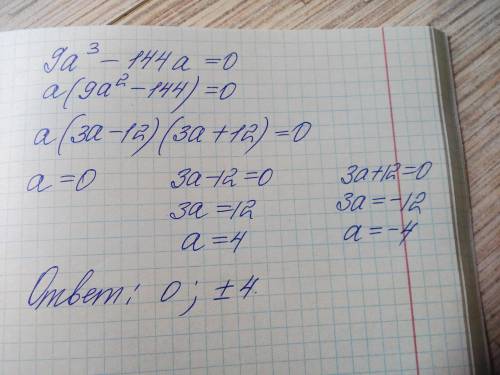 9a³ − 144a = 0
a(9a² − 144) = 0
a(3a − 12)(3a + 12) = 0
a = 0 3a − 12 = 0 3a + 12 = 0
3a = 12 3a = −12
a = 4 a = −4
Ответ: 0; ± 4.